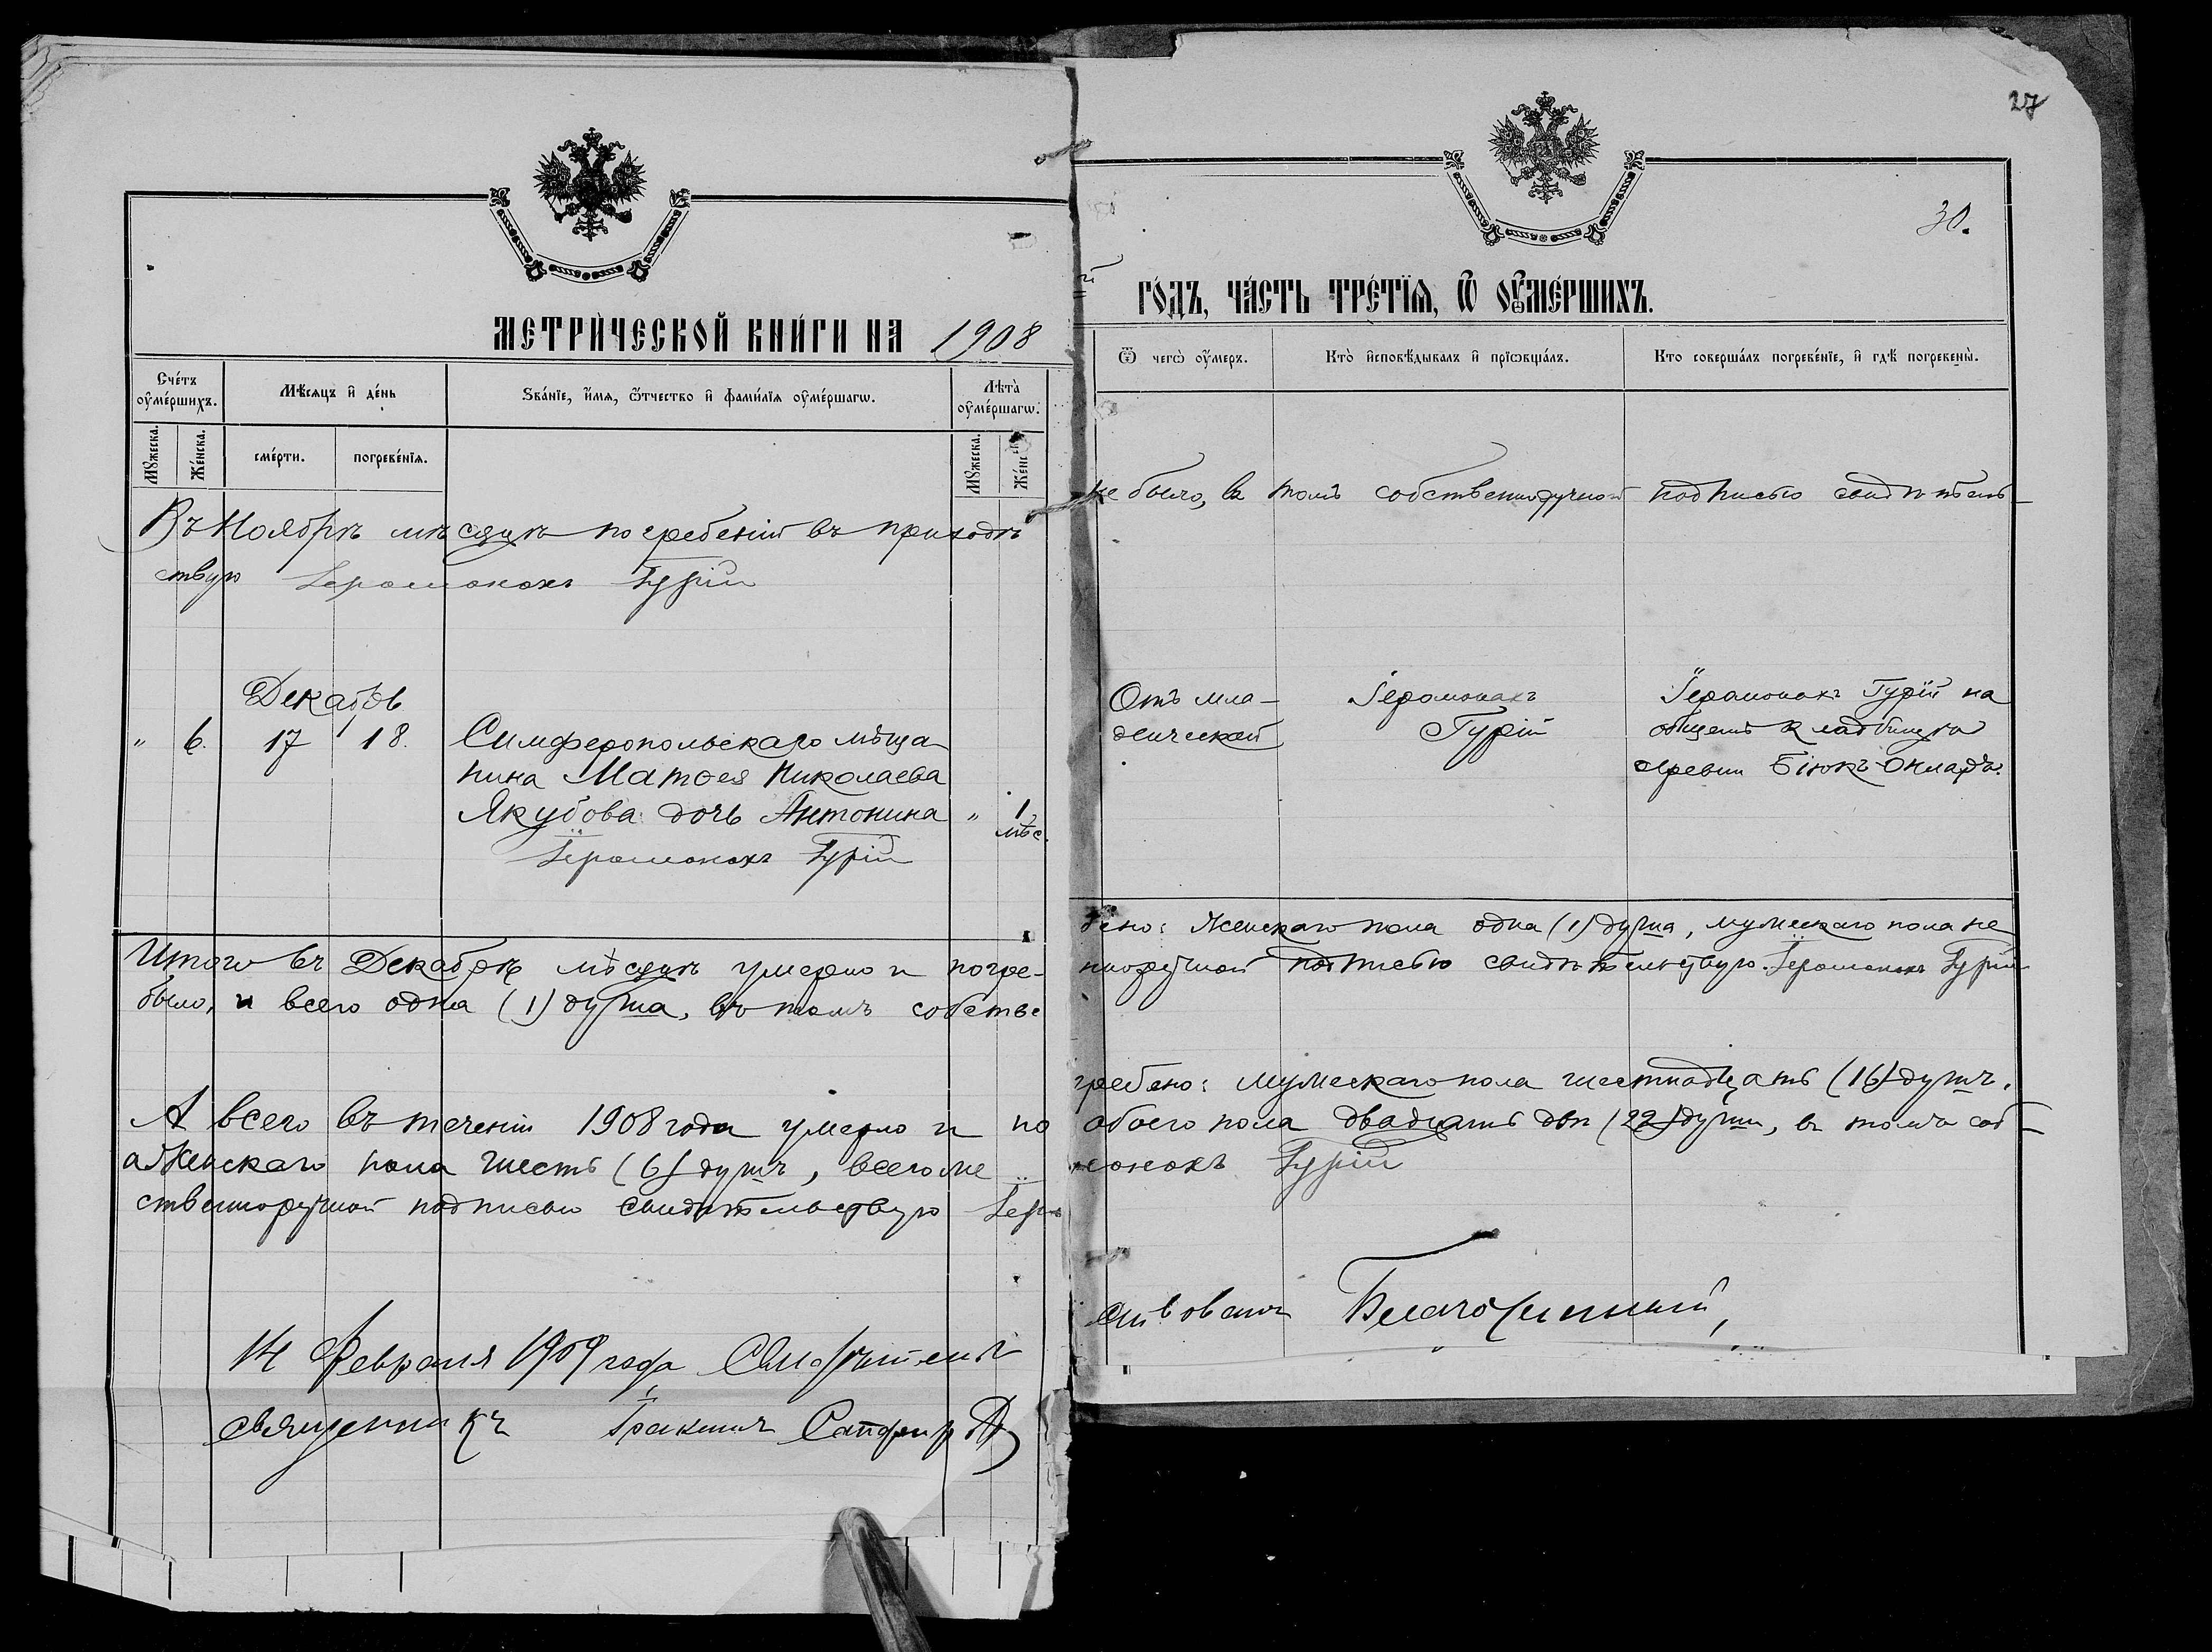 27
30.
МЕТРИЧЕСКОЙ КНИГИ НА 1908
й ГОДЪ, ЧАСТЬ ТРЕТІЯ, Ѿ ОУМЕРШИХЪ.
Счетъ оумершихъ.
Мѣсяцъ и день
Званіе, имя, отчество и фамилія оумершагѡ.
Лѣта оумершагѡ.
Ѿ чегѡ оумеръ.
Кто исповѣдывалъ и пріѡбщалъ.
Кто совершалъ погребеніе, и гдѣ погребены.
Мужеска.
Женска.
смерти.
погребенія.
Мужеска.
Женс
Въ Ноябрѣ мѣсяцѣ погребеній въ приходѣ
не было, въ томъ собственноручной подписью свидѣтель-
ствую Іеромонахъ Гурій
Декабрь
" 6. 17 18. Симферопольскаго мѣща-
нина Матѳея Николаева
Якубова дочь Антонина " 1 мѣс.
Іеромонахъ Гурій
Отъ мла-
денческой
Іеромонахъ
Гурій
Іеромонахъ Гурій на
общемъ кладбищѣ
деревни Біюкъ-Онларъ.
Итого въ Декабрѣ мѣсяцѣ умерло и погре-
бено: Женскаго пола одна (1) душа, мужескаго пола не
было, и всего одна (1) душа, въ томъ собстве
нноручной подписью свидѣтельствую. Іеромонахъ Гурій
А всего въ теченіи 1908 года умерло и по
гребено: мужескаго пола шестнадцать (16) душъ,
а Женскаго пола шесть (6) душъ, всего же
обоего пола двадцать двѣ (22) души, въ томъ соб-
ственноручной подписью свидѣтельствую Іеро
монахъ Гурій
14 Февраля 1909 года
ствовалъ Благочинный,
священникъ